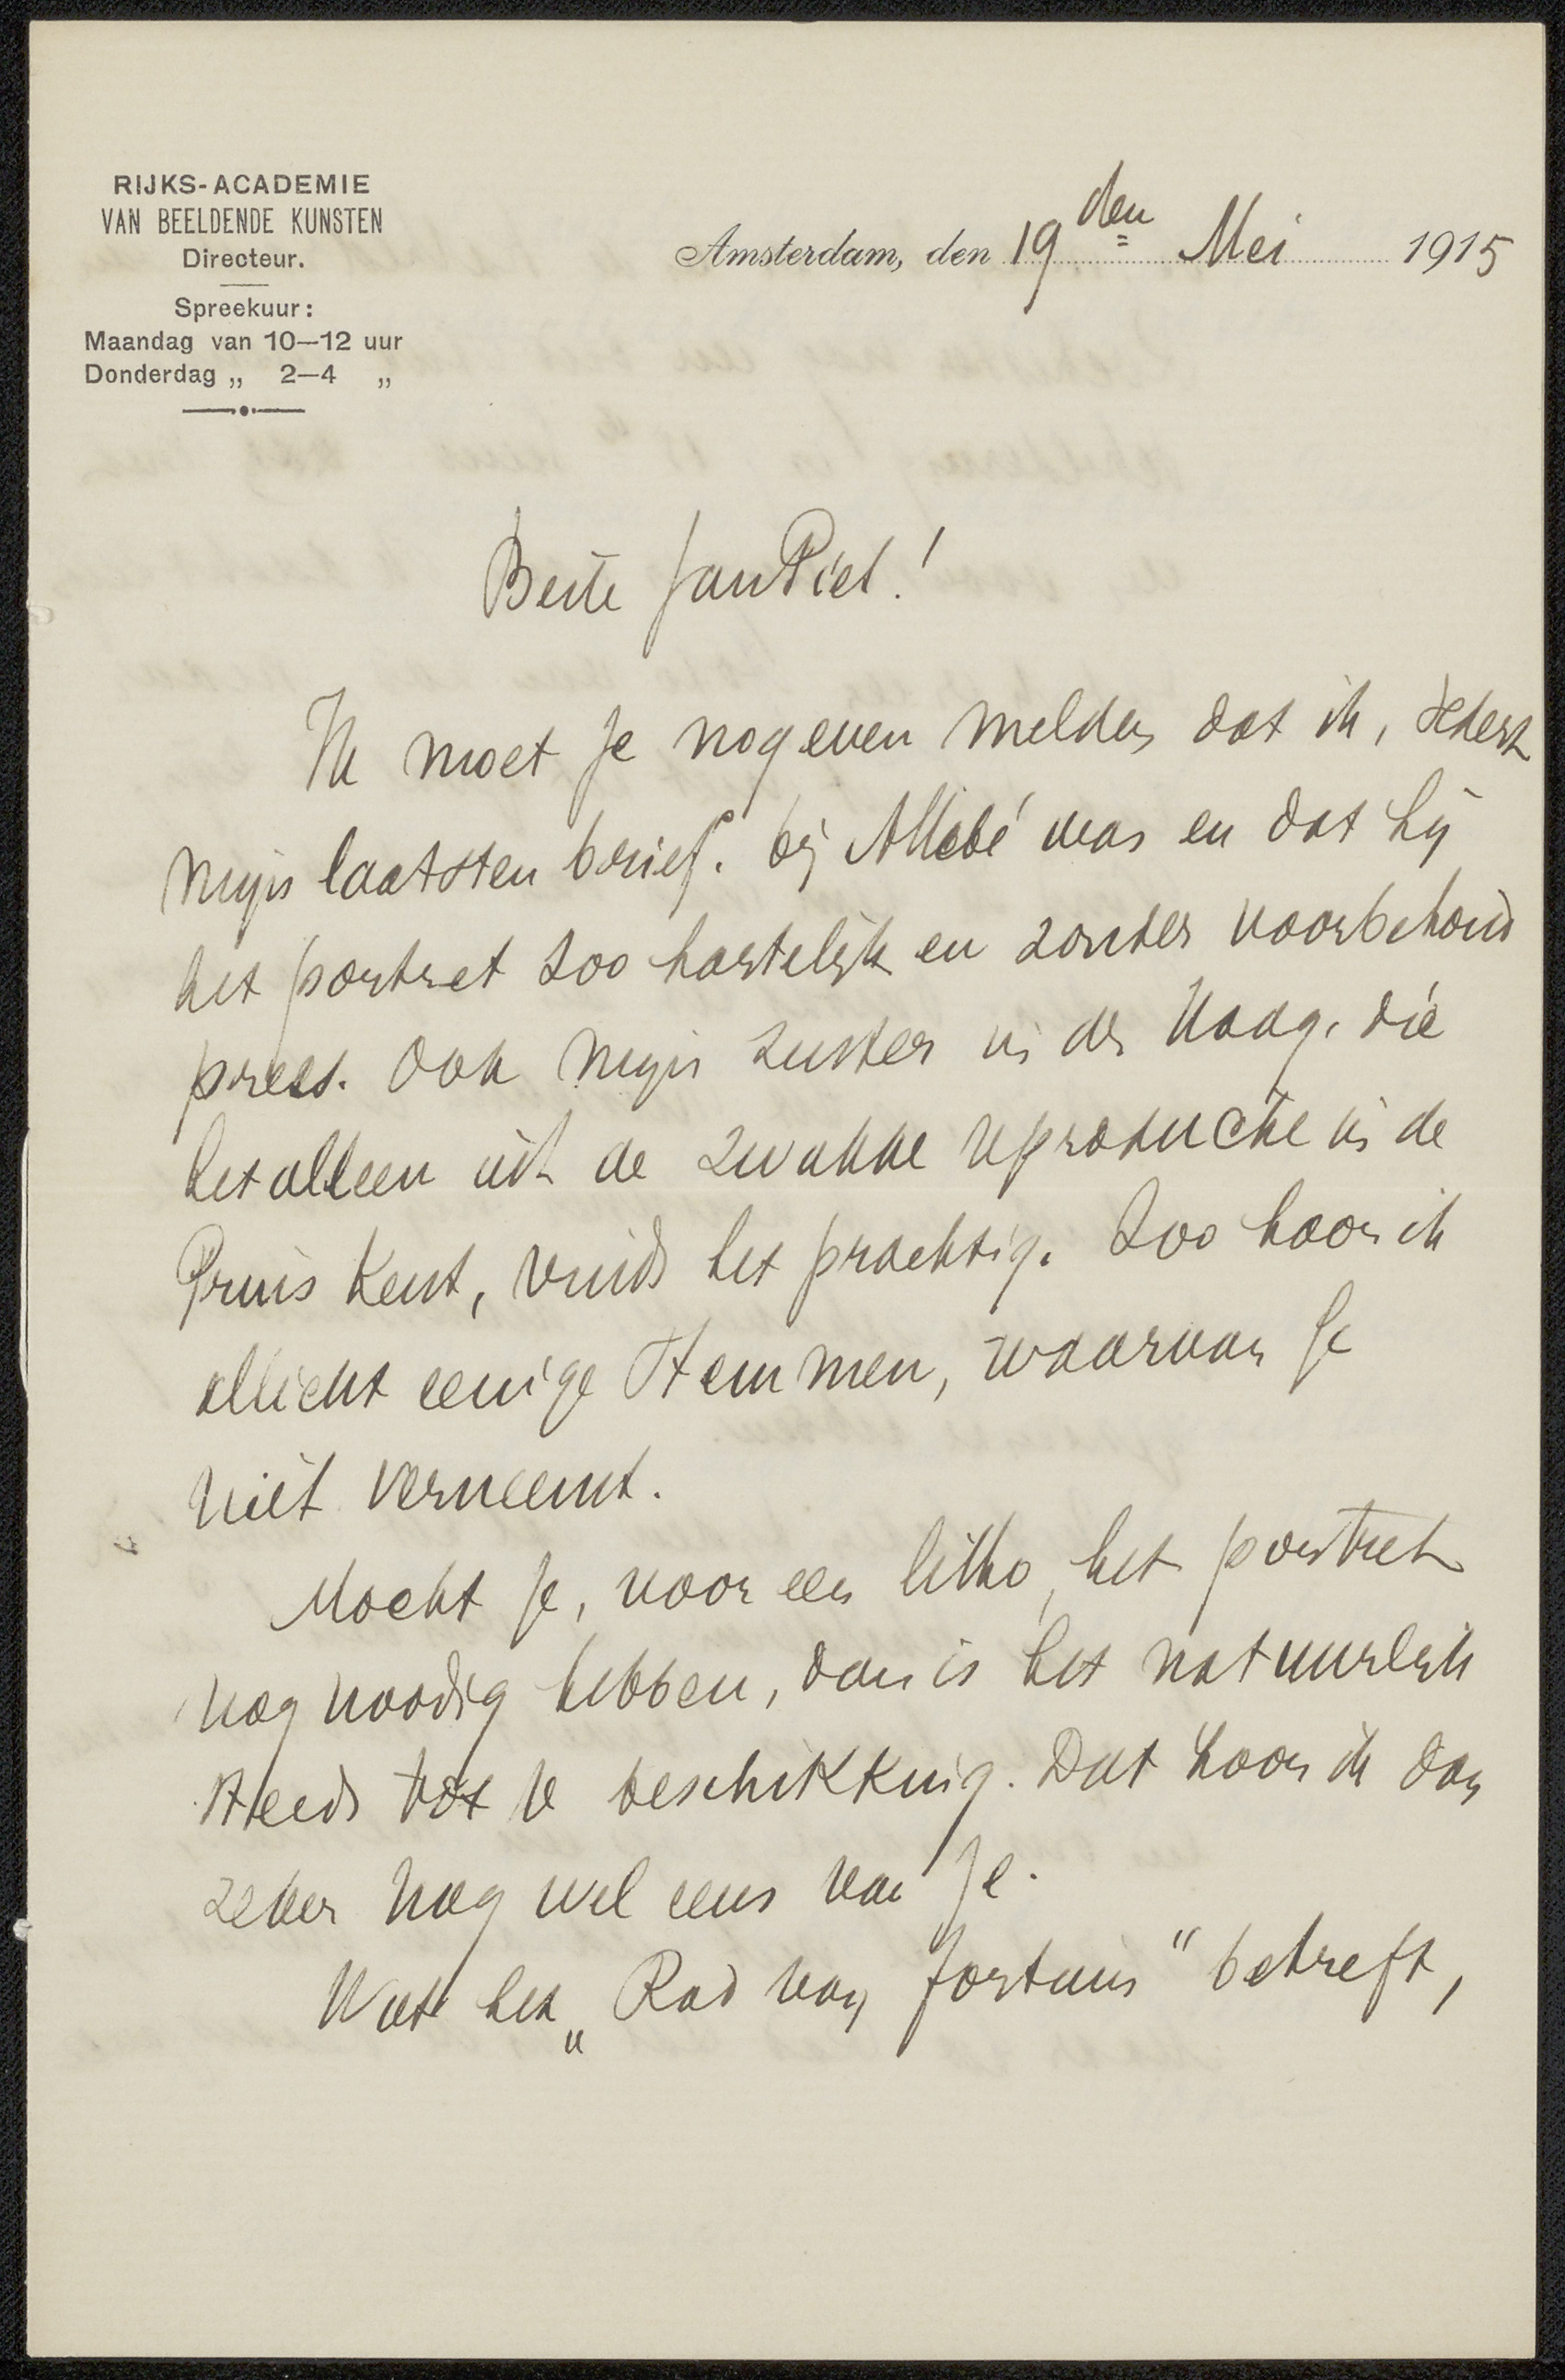 RIJKS-ACADEMIE
VAN BEELDENDE KUNSTEN
Directeur.
Spreekuur:
Maandag van 10—12 uur
Donderdag „ 2—4 „
Amsterdam, den 19 den Mei 1915
Beste JanPiet!
Ik moet je nog even melden dat ik, sedert
mijn laatsten brief. bij Allebé was en dat hij
het portret zoo hartelijk en zonder voorbehoud
prees. Ook mijn zuster in den Haag, die
het alleen uit de zwakke reproductie in de
Prins kent, vindt het prachtig. Zoo hoor ik
allicht eenige stemmen, waarvan je
niet verneemt.
Mocht je, voor een litho, het portret
nog noodig hebben, dan is het natuurlijk
steeds tot je beschikking. Dat hoor ik dan
zeker nog wel eens van je.
Wat het „Rad van fortuin" betreft,